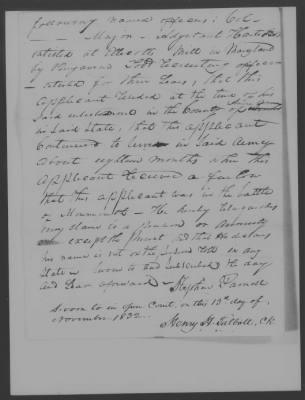 following named officers: Col –
Major – adjutant
enlisted at Ellicotts Mill in Maryland
by Benjamin
enlisted for three years, that this
applicant resided at the time of his
said enlistment in the County of
in Said State, that this applicant
continued to serve in Said Army
about eighteen months when this
applicant received a furlow
that this applicant was in the battle
of Monmouth – He hereby relinquishes
every claim to a pension or annuity
except the present and that he declares
his name is not on the pension roll in any
State – Sworn to and subscribed the day
and year aforesaid – Stephen
Sworn to in open Court, on this 13th day of
November 1832 –
Henry H. Talbott, Ck